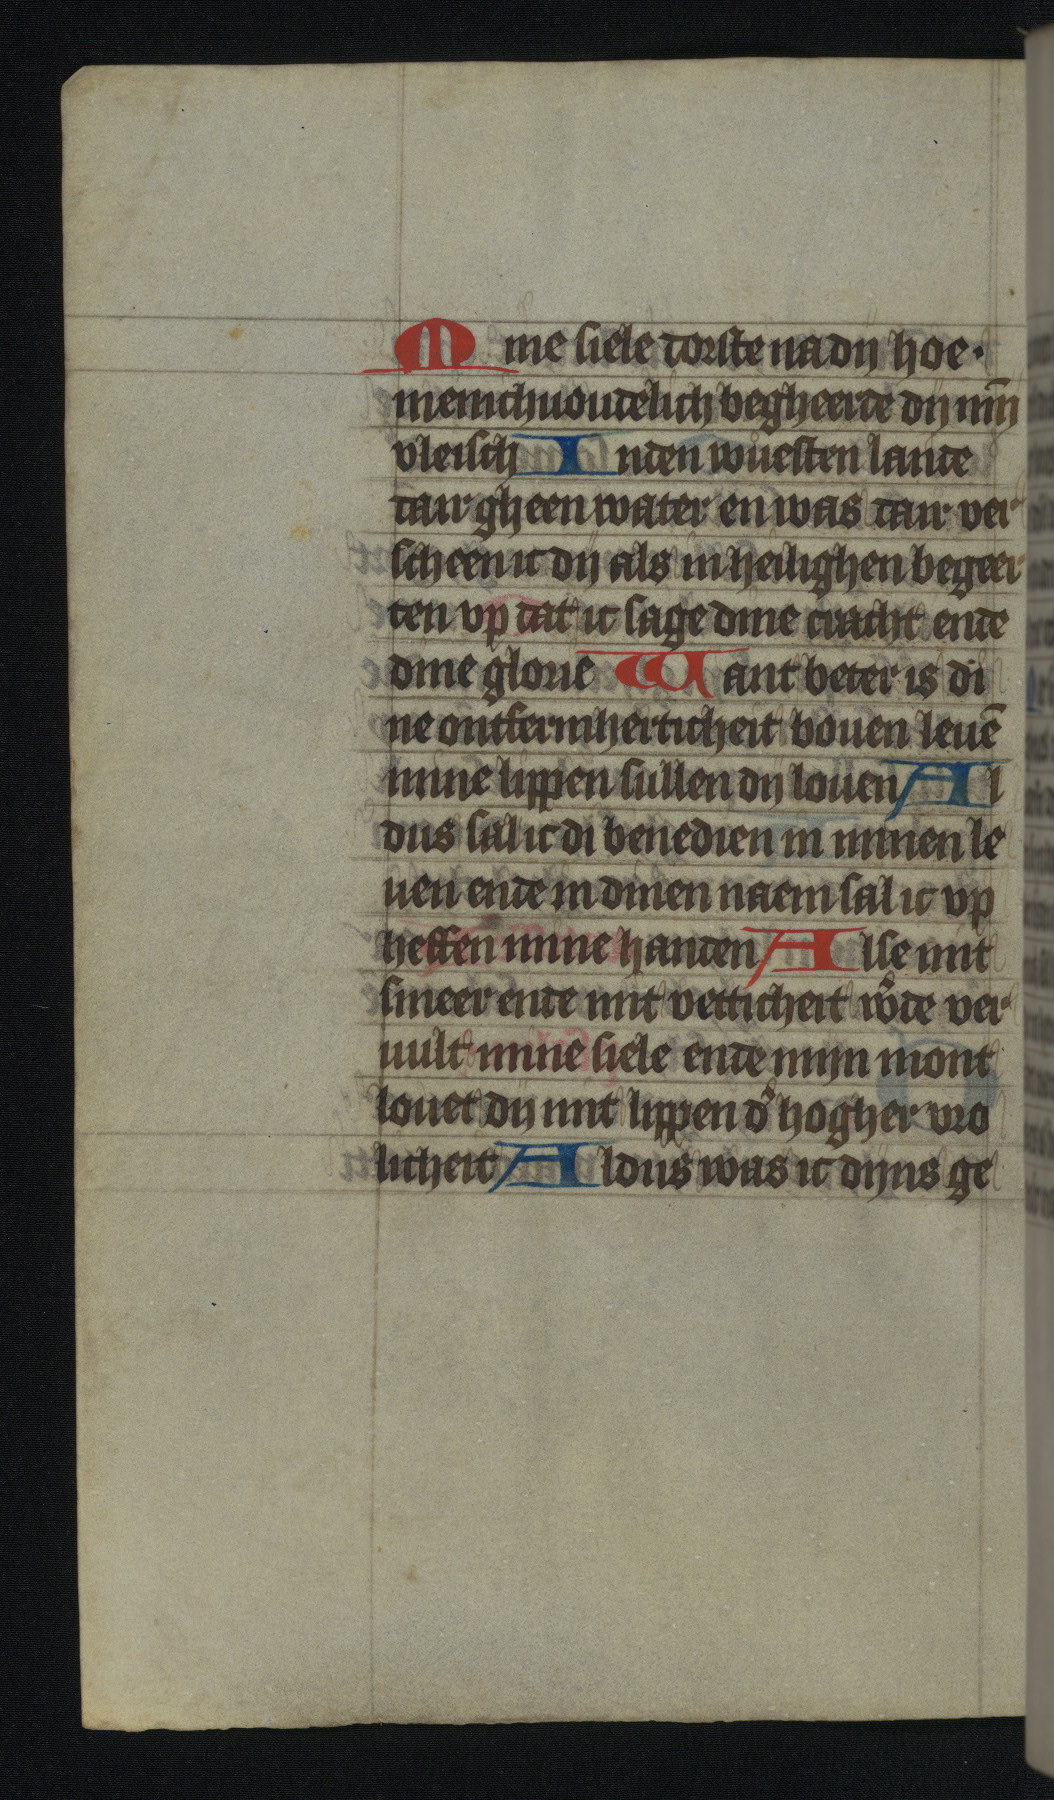 Mine siele dorste na dij hoe·
menichuoudelich begheerde dij mīn
vleisch Inden wuesten lande
dair gheen water en was dair ver
scheen ic dij als in heilighen begeer
ten vp dat ic sage dine cracht ende
dine glorie Want beter is di
ne ontfermherticheit bouen leuē
mine lippen sullen dij louen Al
dus sal ic di benedien in minen le
uen ende in dinen naem sal ic vp
heffen mine handen Alse mit
smeer ende mit vetticheit w͛de ver
uult mine siele ende mijn mont
louet dij mit lippen d͛ hogher vro
licheit Aldus was ic dijns ge